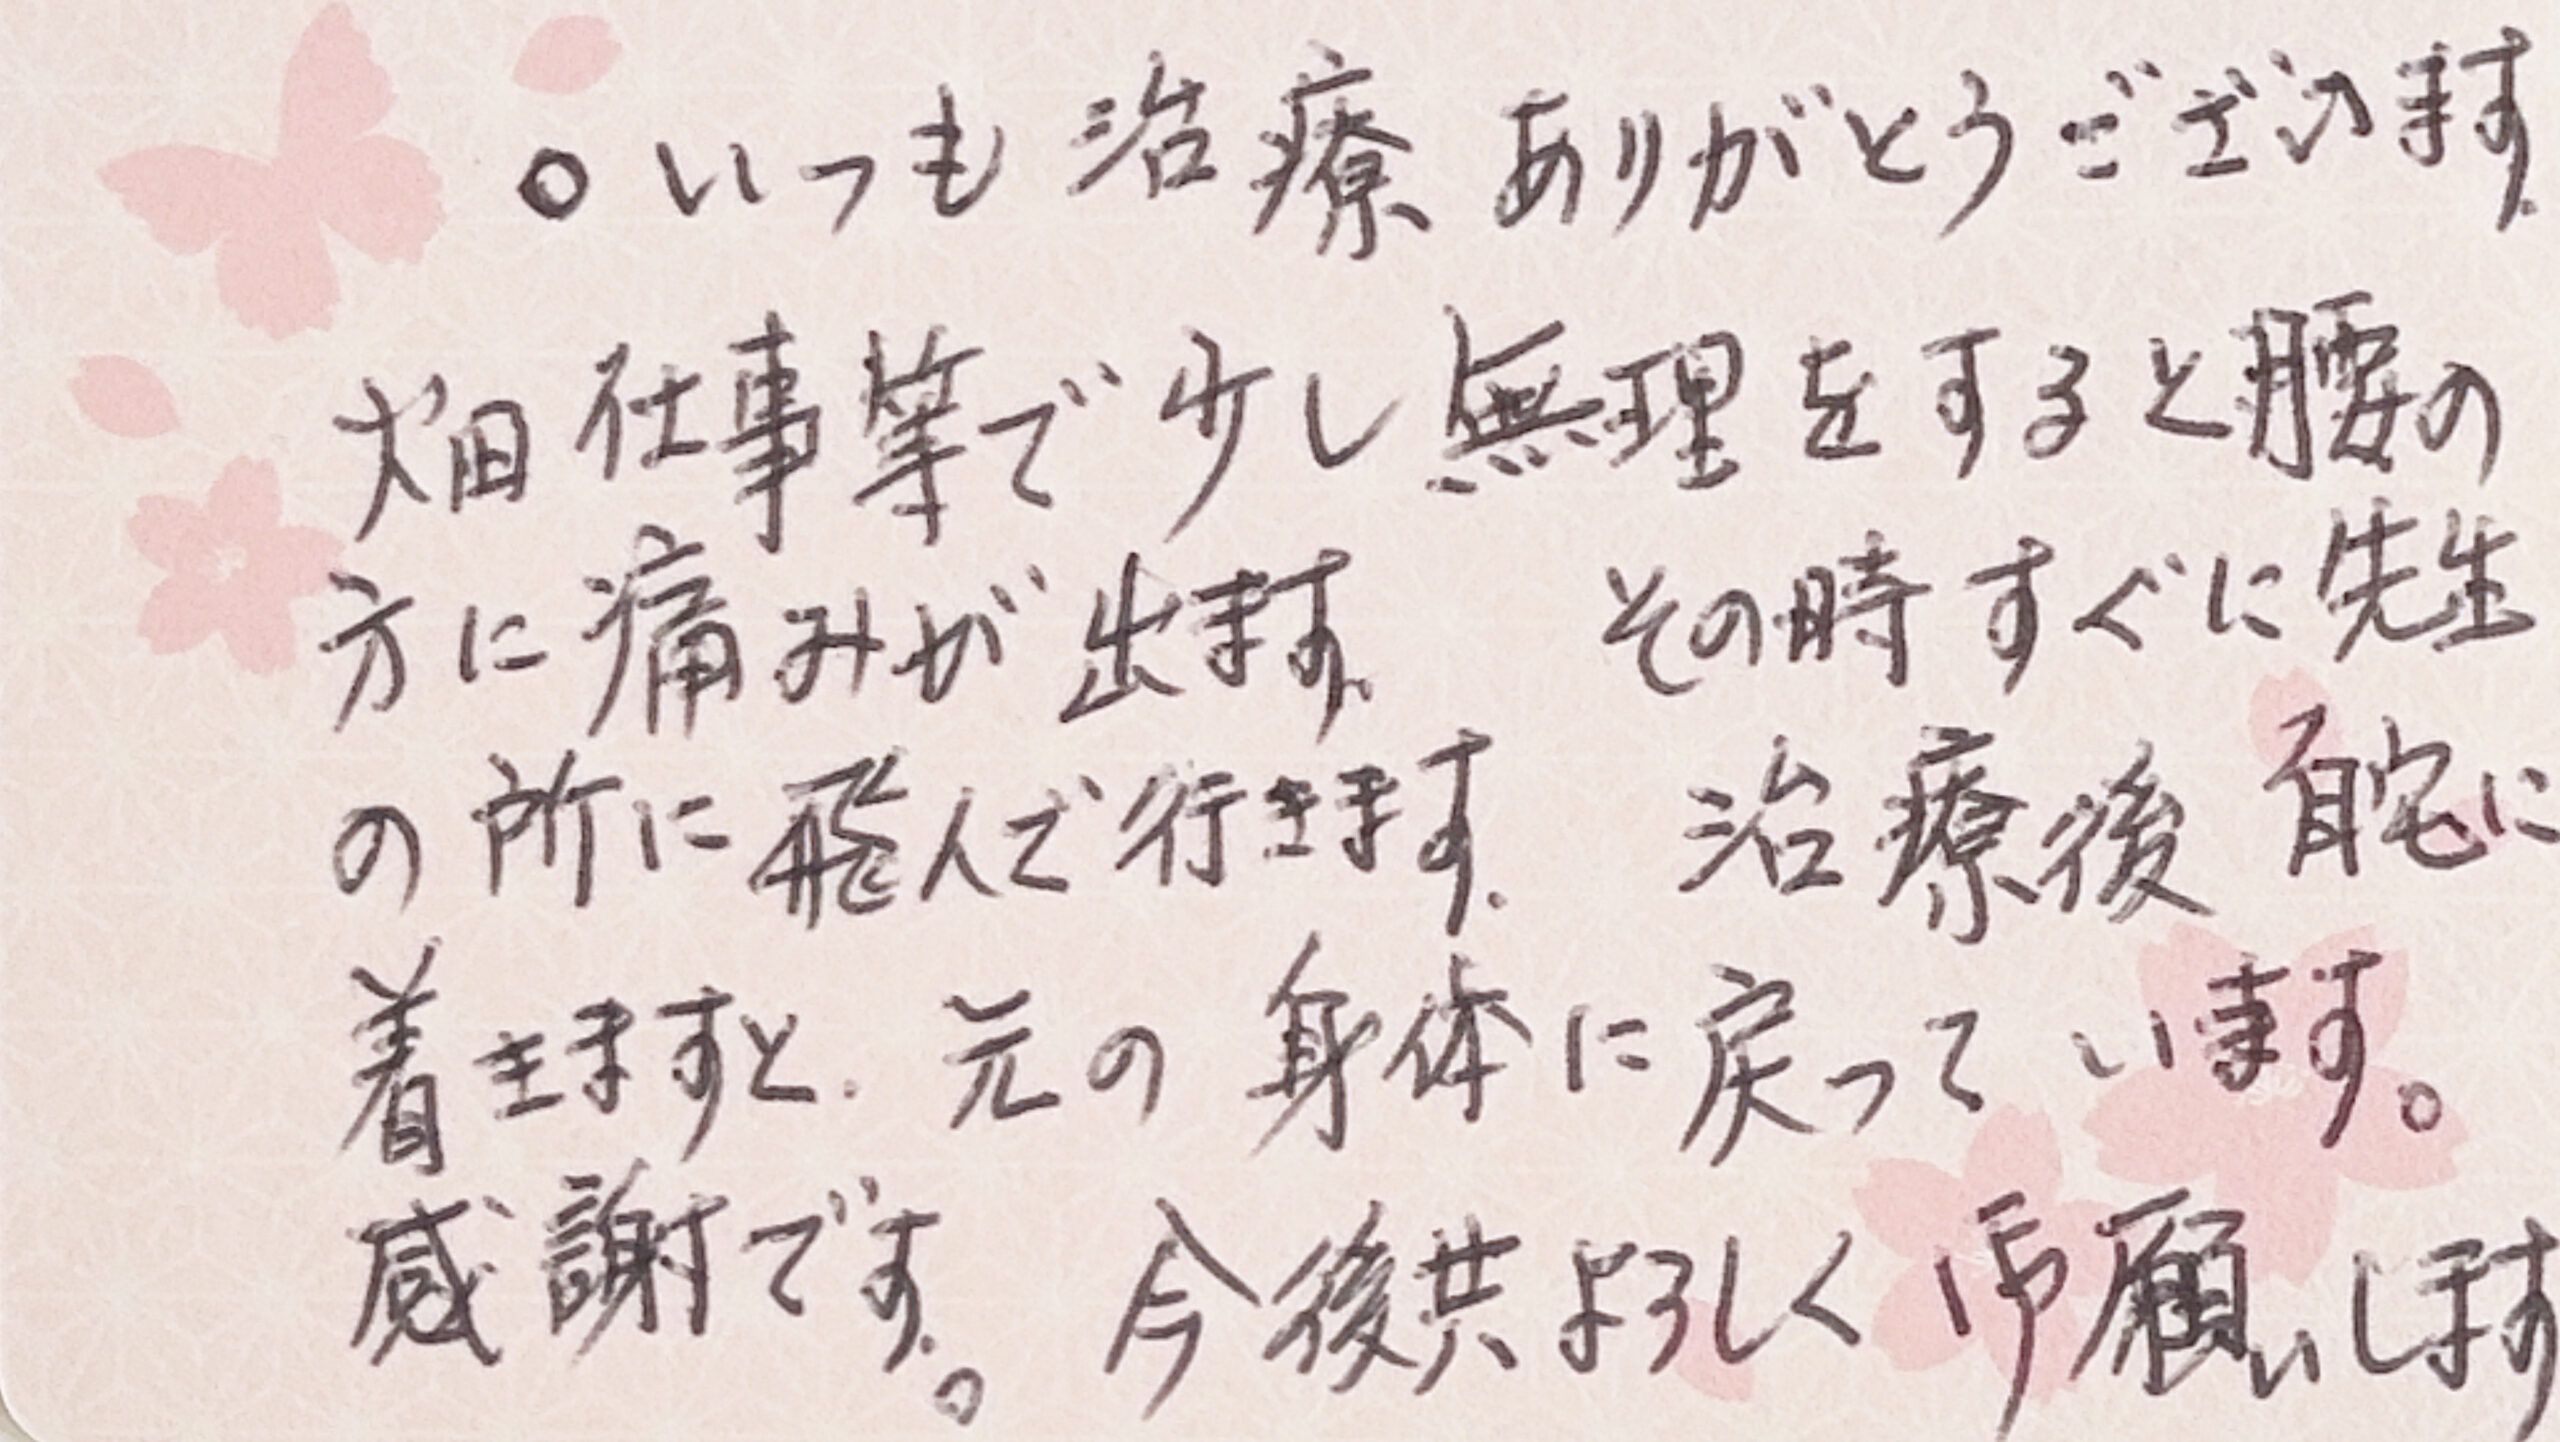 ○いつも治療ありがとうございます.
畑仕事等で少し無理をすると腰の
方に痛みが出ます. その時すぐに先生
の所に飛んで行きます. 治療後自宅に
着きますと. 元の身体に戻っています。
感謝です。 今後共よろしく御願いします